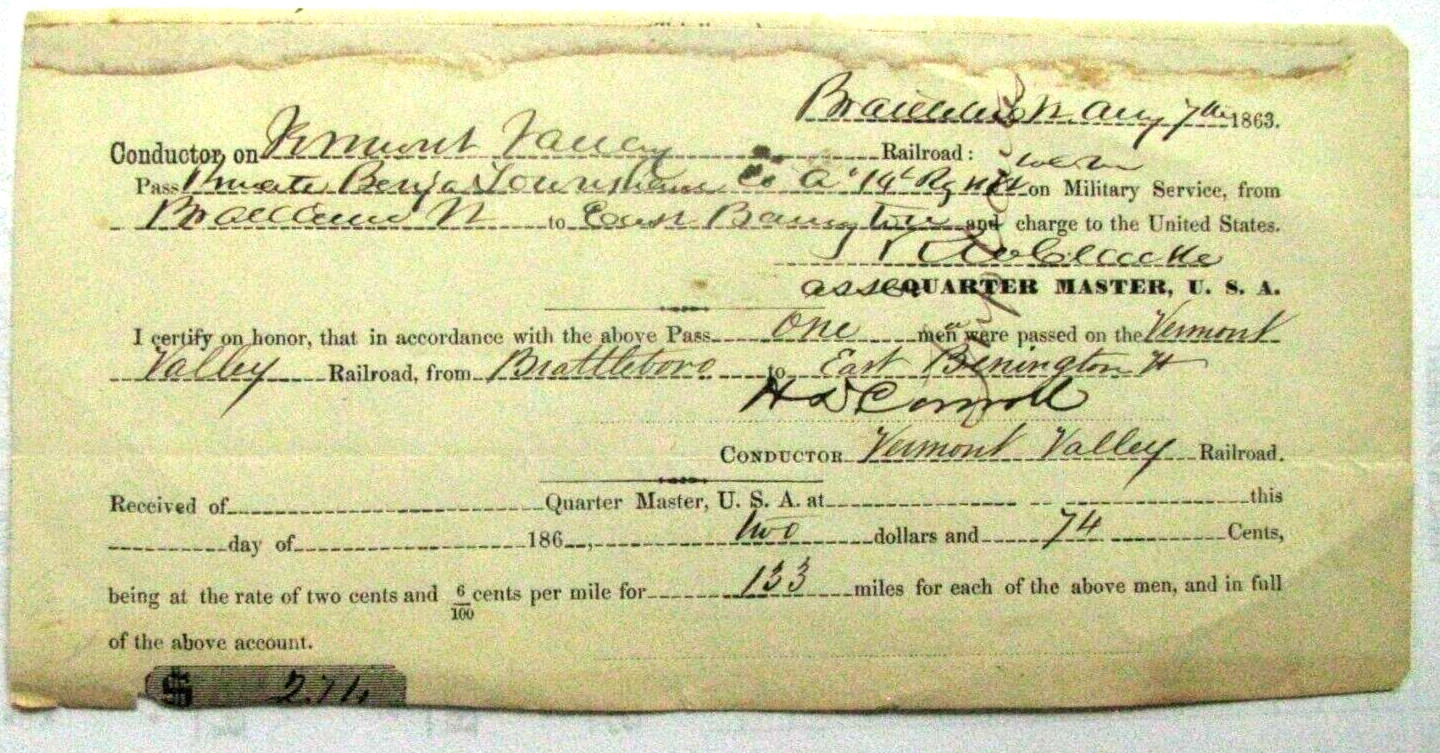 Aug 7th 1863.
Conductor on Vermont Valley Railroad:
Pass Private Benja Co A 14th Regt on Military Service, from
to East and charge to the United States.
QUARTER MASTER, U. S. A.
I certify on honor, that in accordance with the above Pass One men were passed on the Vermont
Valley Railroad, from Brattleboro to East Benington Vt
Conductor Vermont Valley Railroad.
Received of Quarter Master, U. S. A. at this
day of 186 , two dollars and 74 Cents,
being at the rate of two cents and 6/100 cents per mile for 133 miles for each of the above men, and in full
of the above account.
$ 2.74